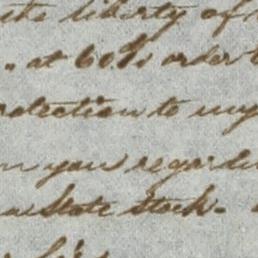 the liberty of
. at 60% order
rotection to my
you regardin
State Stock.